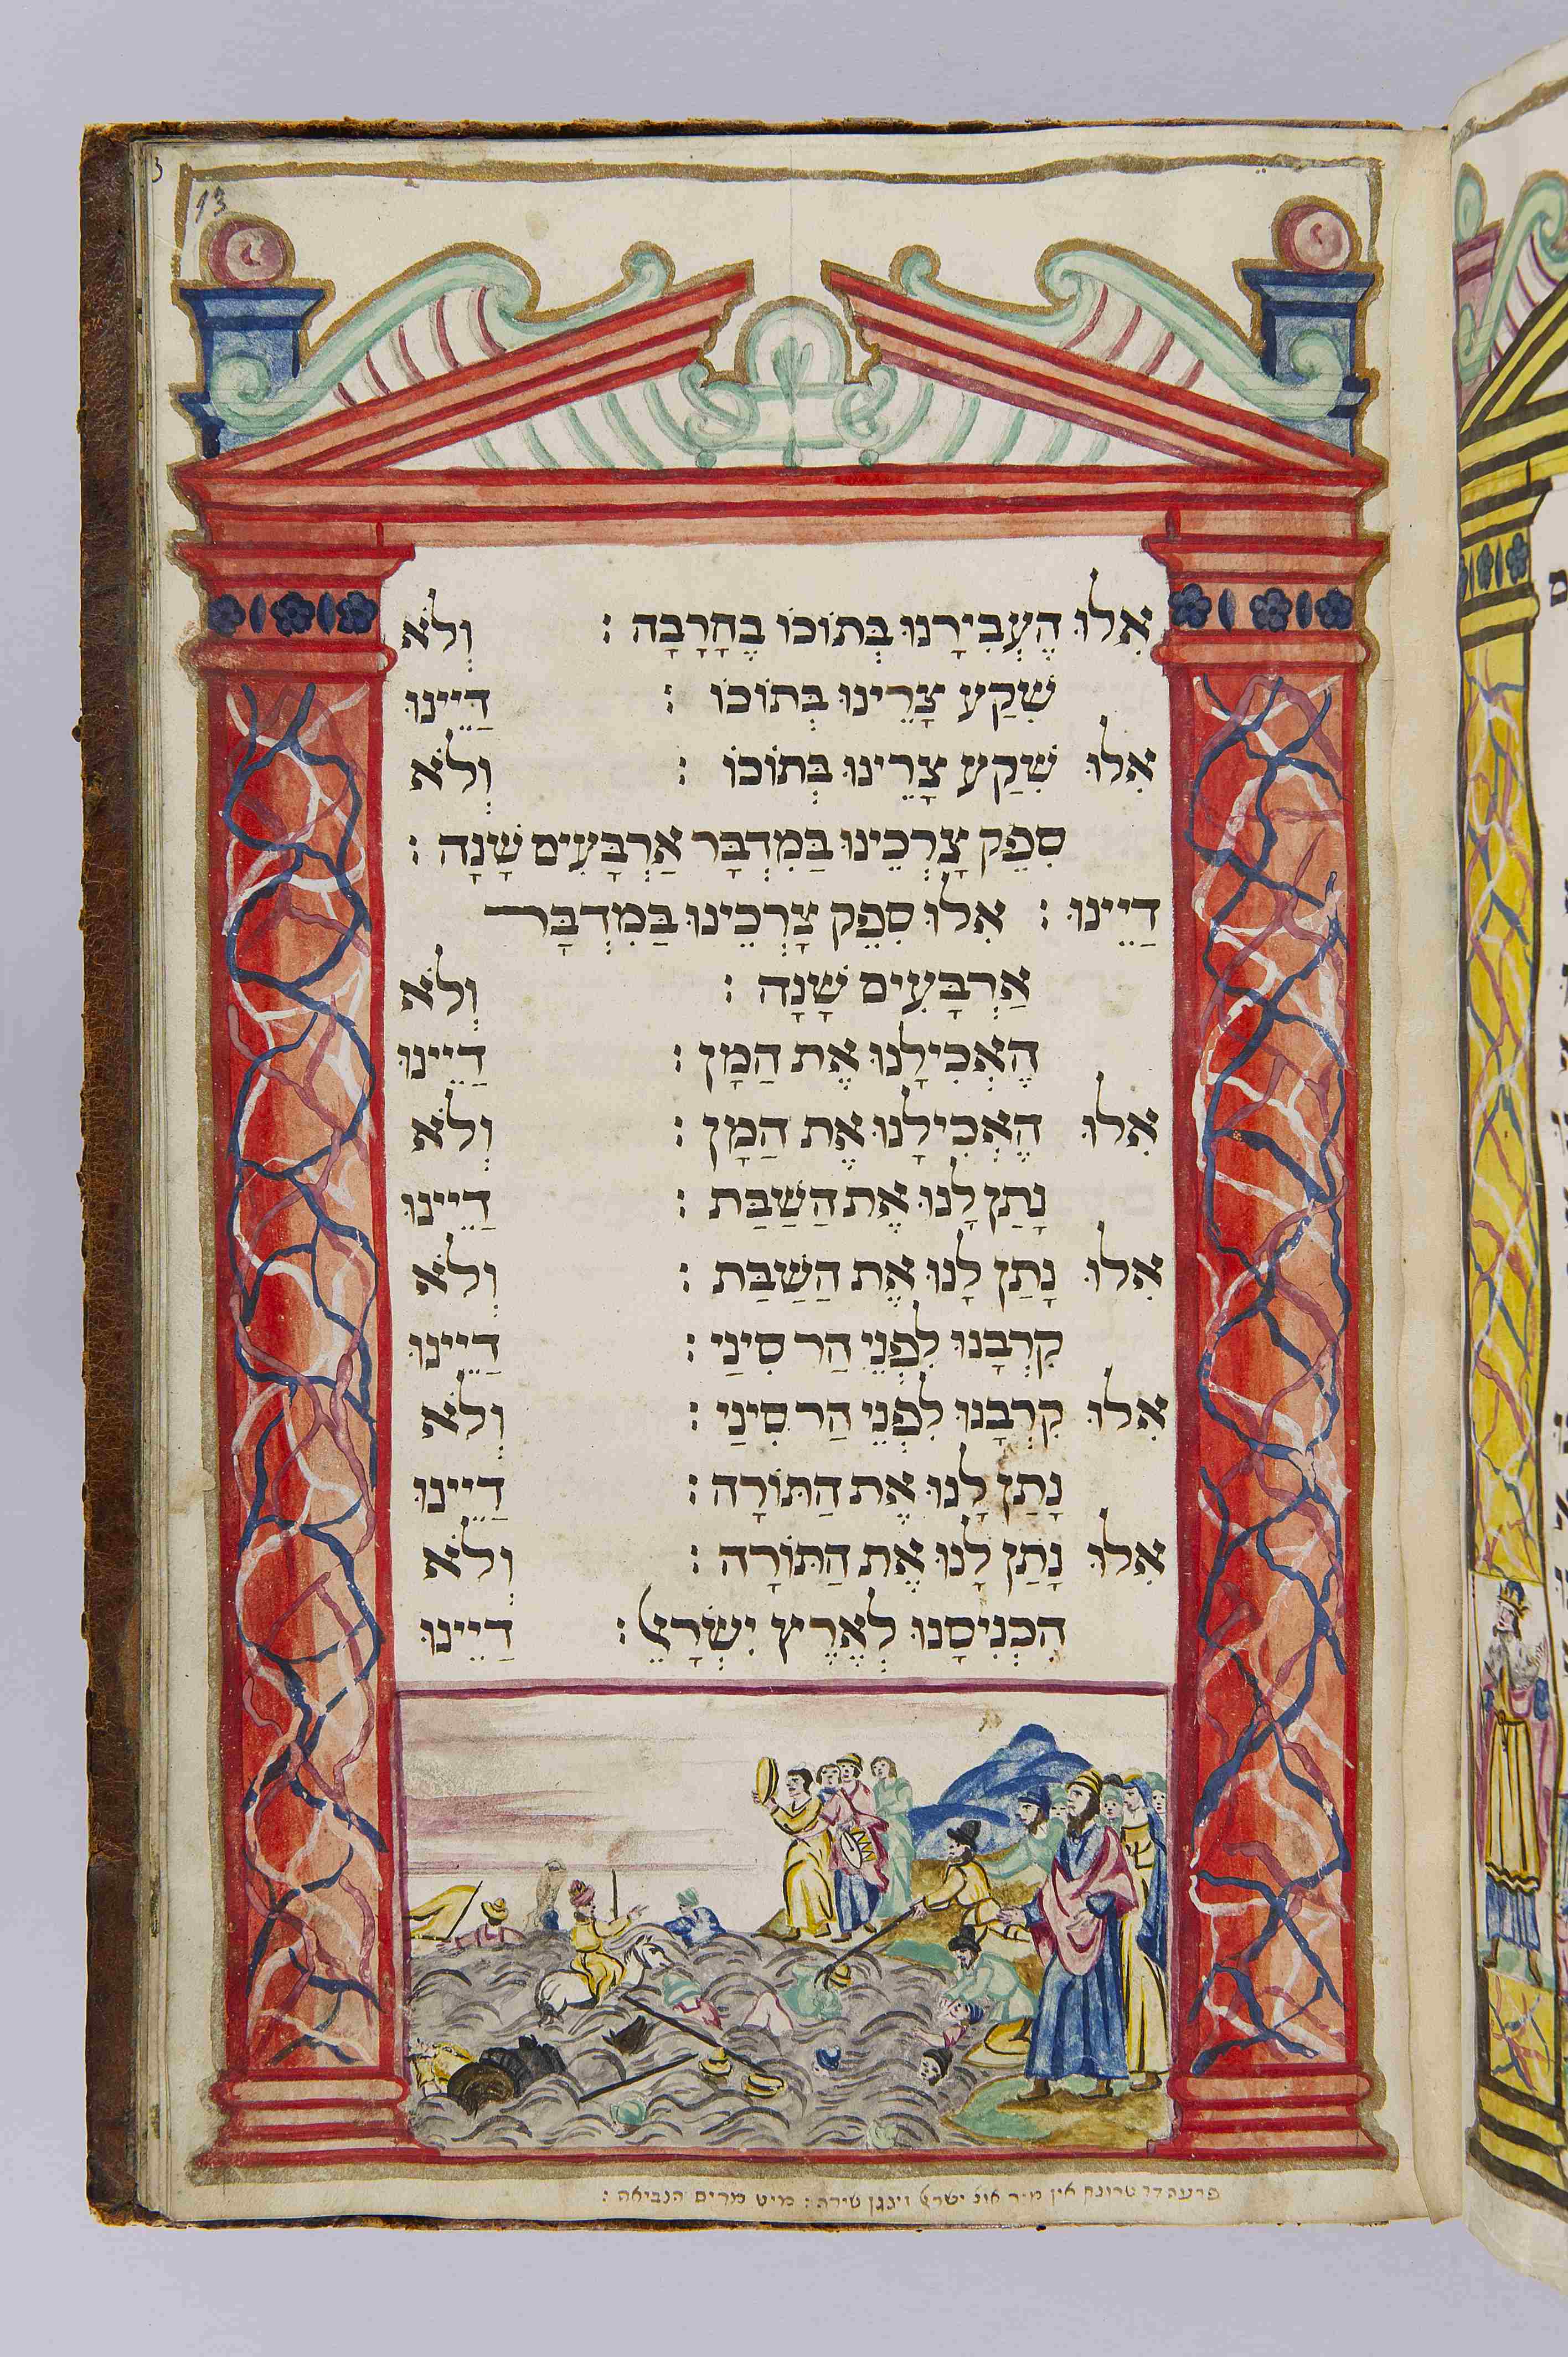 13
אִלוּ הֶעְבִירָנוּ בְּתוֹכוֹ בֶחָרָבָה : וְלֹא
שִׁקַע צָרֵינוּ בְּתוֹכוֹ : דַיֵינוּ
אִלוּ שִׁקַע צָרֵינוּ בְּתוֹכוֹ : וְלֹא
סִפֵּק צָרְכֵינוּ בַּמִדְבָּר אַרְבָּעִים שָׁנָה :
דַיֵינוּ : אִלוּ סִפֵּק צָרְכֵינוּ בַּמִדְבָּר
אַרְבָּעִים שָׁנָה : וְלֹא
הֶאֱכִילָנוּ אֶת הַמָן : דַיֵינוּ
אִלוּ הֶאֱכִילָנוּ אֶת הַמָן : וְלֹא
נָתַן לָנוּ אֶת הַשַׁבַּת : דַיֵינוּ
אִלוּ נָתַן לָנוּ אֶת הַשַׁבַּת : וְלֹא
קִרְבָנוּ לִפְנֵי הַר סִינַי : דַיֵינוּ
אִלוּ קִרְבָנוּ לִפְנֵי הַר סִינַי : וְלֹא
נָתַן לָנוּ אֶת הַתּוֹרָה : דַיֵינוּ
אִלוּ נָתַן לָנוּ אֶת הַתּוֹרָה : וְלֹא
הִכְנִיסָנוּ לְאֶרֶץ יִשְׂרָאֵל : דַיֵינוּ
פרעה דר טרונק אין מיר אונ ישראל זינגן שירה : מיט מרים הנביאה :